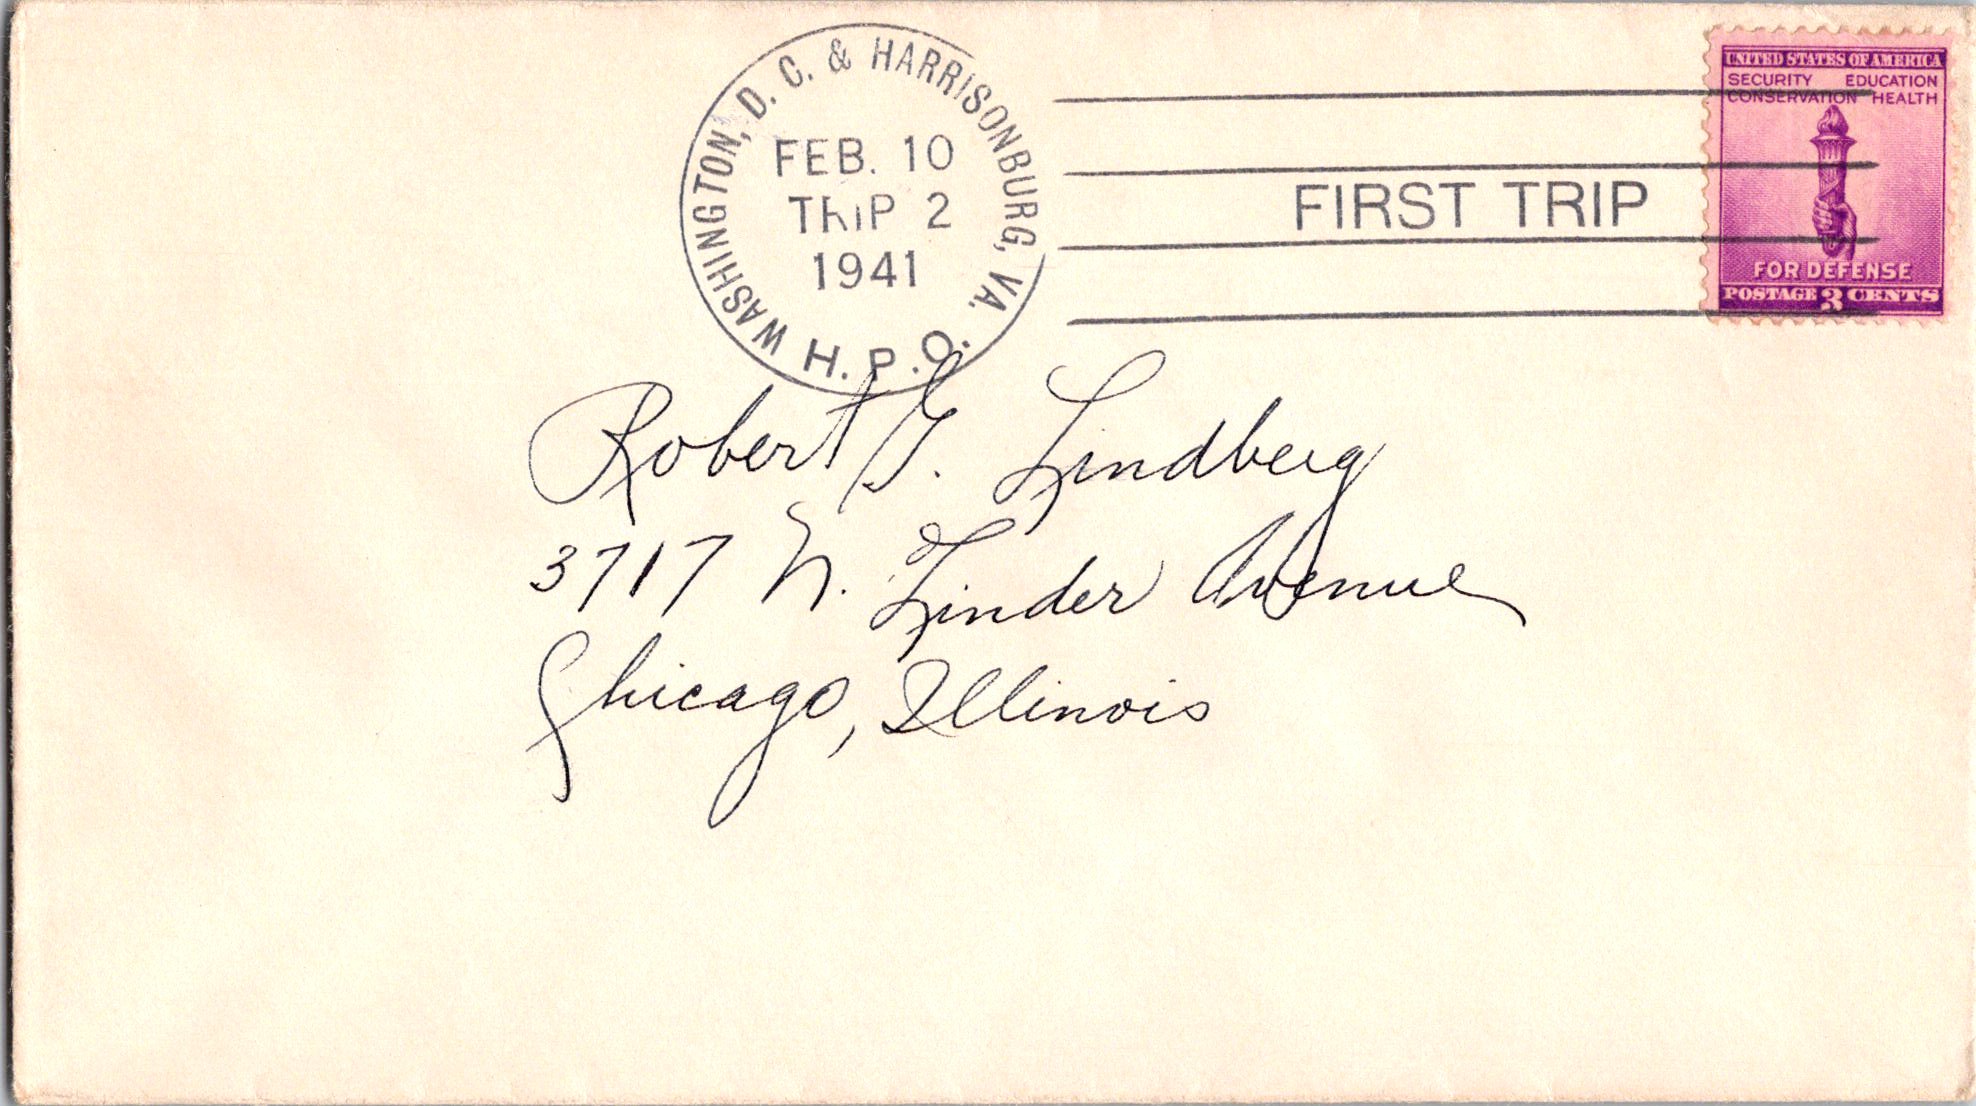 WASHINGTON, D. C. & HARRISONBURG, VA.
FEB. 10
TRIP 2
1941
H. P. O.
FIRST TRIP
UNITED STATES OF AMERICA
SECURITY EDUCATION
CONSERVATION HEALTH
FOR DEFENSE
POSTAGE 3 CENTS
Robert G. Lindberg
3717 N. Linder Avenue
Chicago, Illinois